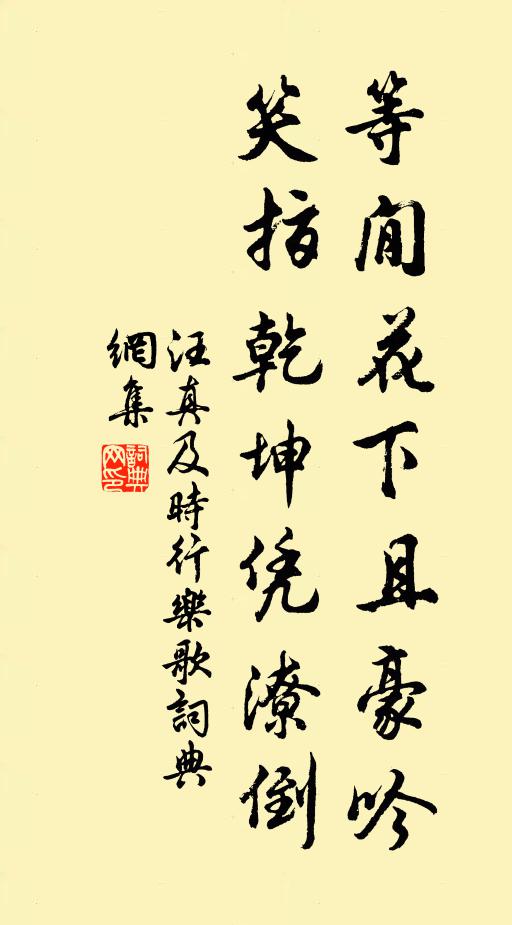 等閒花下且豪吟
笑指乾坤凭潦倒
汪真及時行樂歌詞典
網集
詞典
网印